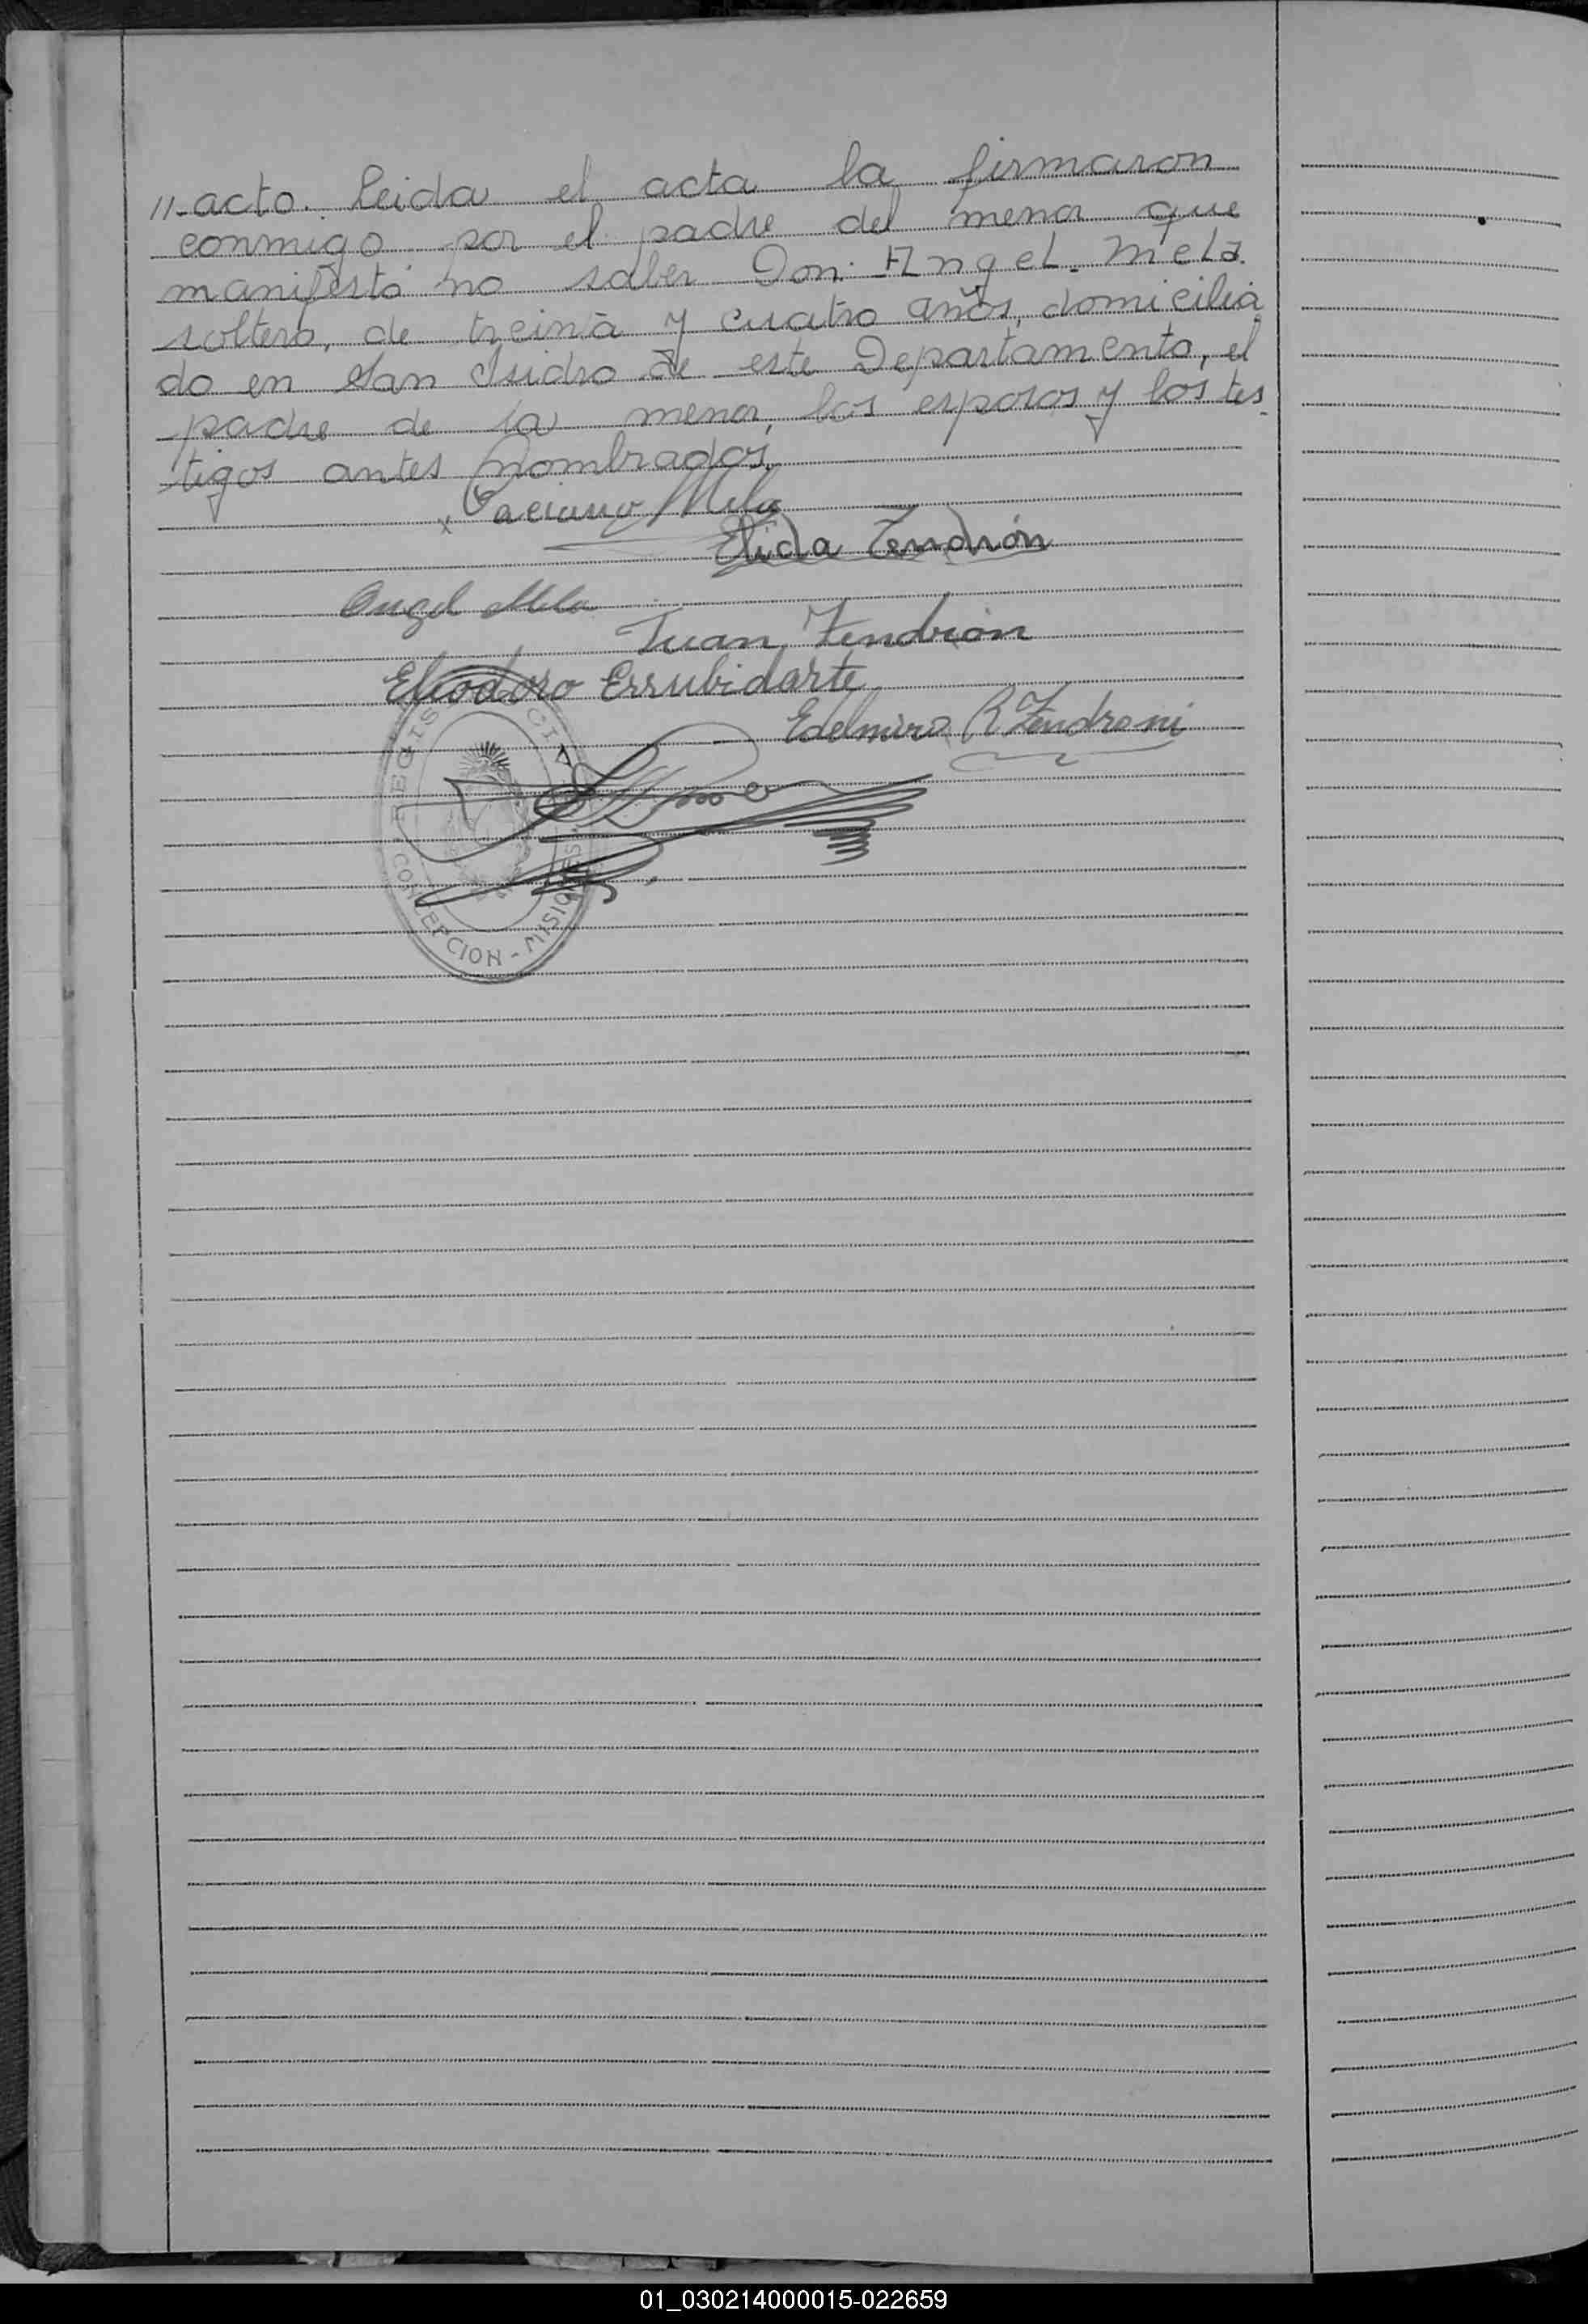 //-acto. Leida el acta la firmaron
conmigo por el padre del menor que
manifestó no saber Don: Angel. Mela.
soltero, de treinta y cuatro años, domicilia
do en San Isidro de este Departamento, el
padre de la menor, los esposos y los tes_
tigos antes nombrados,
x Paciano Mela
Elida Zendrón
Angel Mela
Juan Zendrón
Eliodoro Errubidarte
Edelmiro R Zendroni
REGISTRO CIVIL
CONCEPCION - MISIONES
01_030214000015-022659